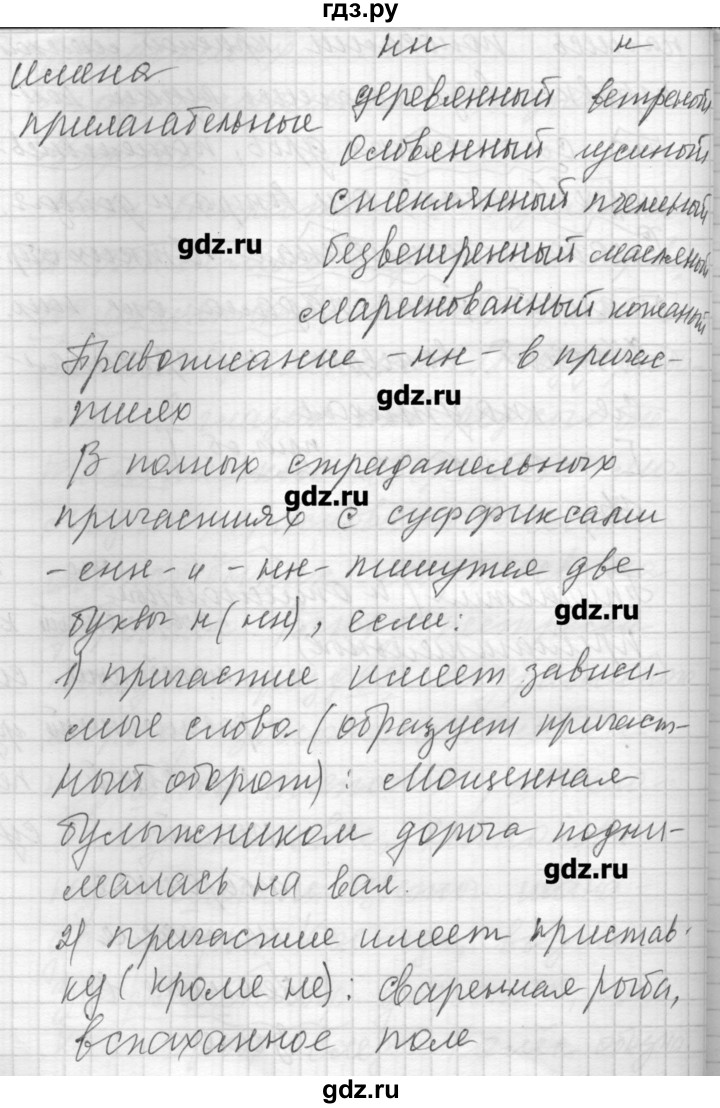 гдз.ру
нн н
Имена
прилагательные деревянный ветреной
оловянный гусиной
стеклянный пчелиный
gdz.ru
безветренный масляный
маринованный кожаный
Правописание -нн- в причас-
gdz.ru
тиях
В полных страдательных
gdz.ru
причастиях с суффиксами
-енн- и -нн- пишутся две
gdz.ru
буквы н(нн), если:
1) причастие имеет зависи-
мые слова (образует причаст-
ный оборот): Мощенная
булыжником дорога подни-
gdz.ru
малась на вал.
2) причастие имеет пристав-
ку (кроме не): сваренная рыба,
вспаханное поле
gdz.ru